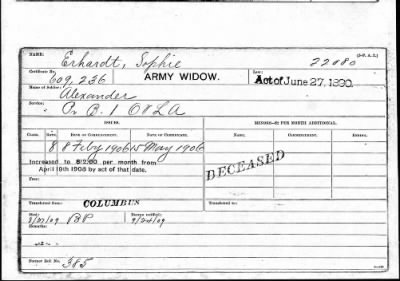 (3-P. A. 2.)
NAME: Erhardt, Sophie 22080
Certificate No. 609,236 ARMY WIDOW. Law: Act of June 27, 1890.
Name of Soldier: Alexander
Service: Pr B. 1 O V L A
ISSUES. MINORS—$2 PER MONTH ADDITIONAL.
CLASS. RATE. DATE OF COMMENCEMENT. DATE OF CERTIFICATE. COMMENCEMENT. ENDING.
8 8 Feby 1906 15 May 1906
Increased to $12.00 per month from
April 19th 1908 by act of that date.
DECEASED
From
Transferred from COLUMBUS Transferred to:
Died: BP 9/24/09
Remarks:
Former Roll No. 385